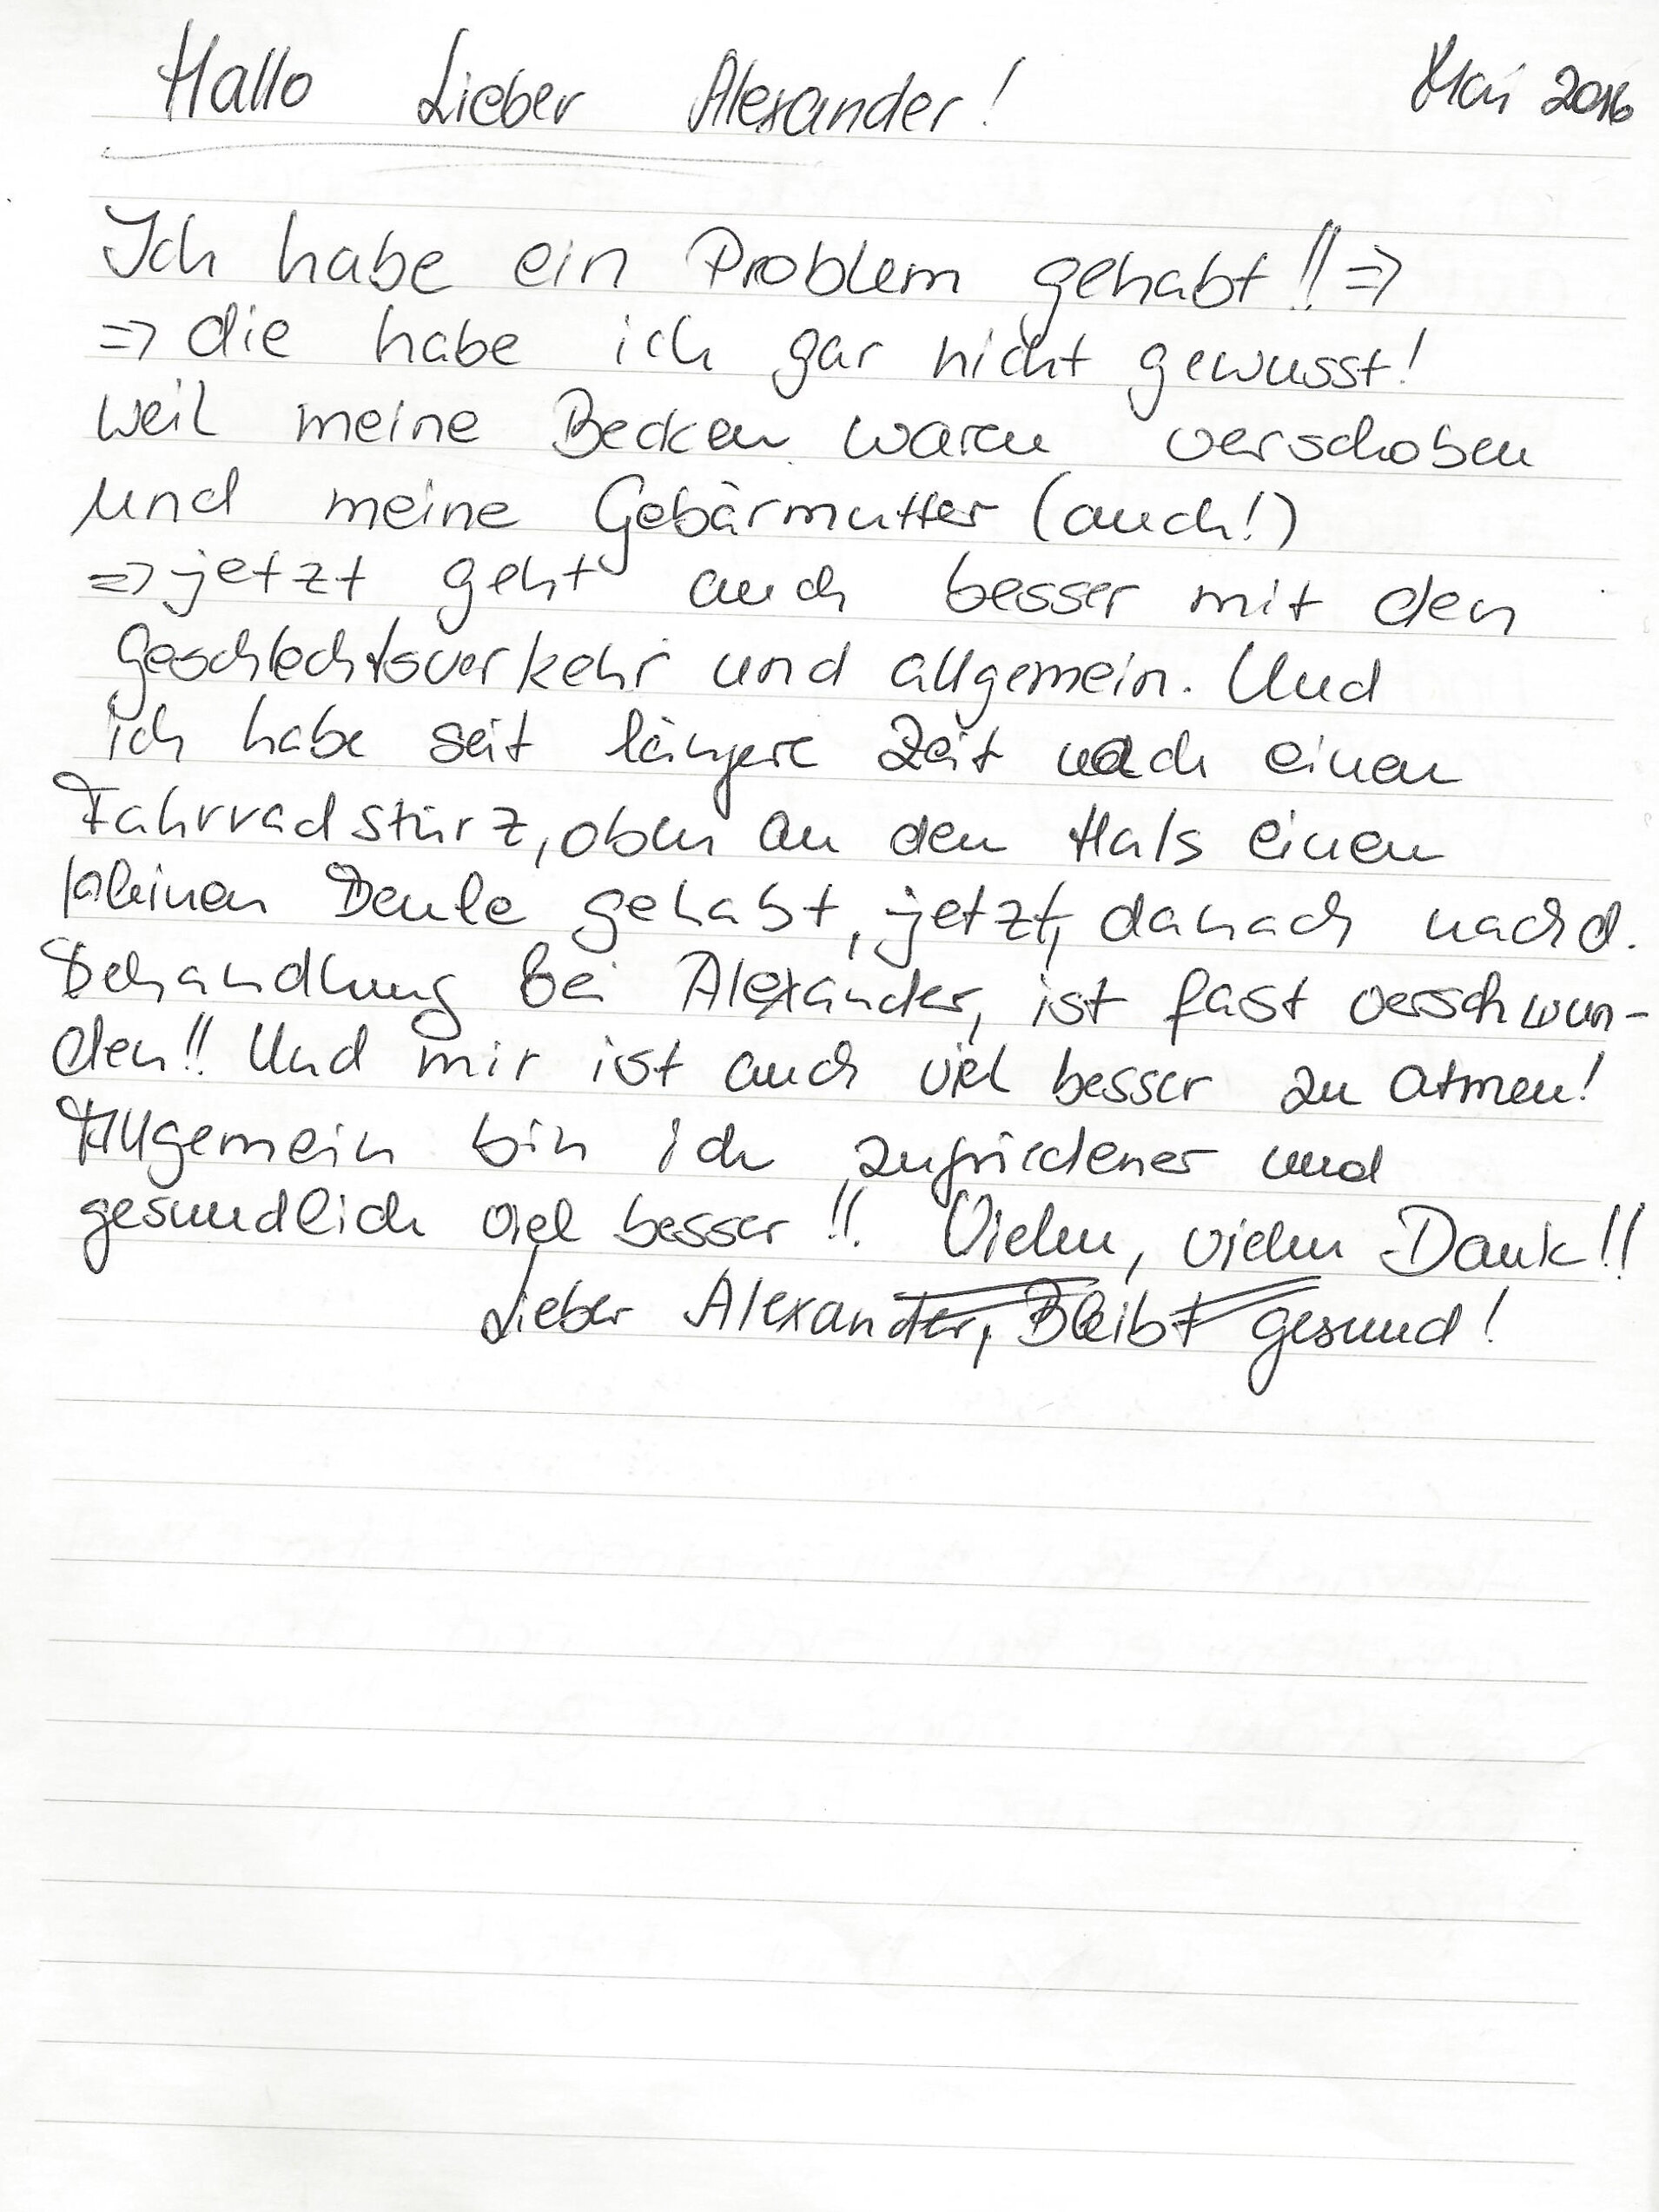 Hallo Lieber Alexander! Mai 2016
Ich habe ein Problem gehabt!! =>
=> die habe ich gar nicht gewusst!
weil meine Becken waren verschoben
und meine Gebärmutter (auch!)
=> jetzt geht auch besser mit den
Geschlechtsverkehr und allgemein. Und
ich habe seit längere Zeit nach einen
Fahrradstürz, oben an den Hals einen
kleinen Beule gehabt, jetzt, danach nach d.
Behandlung bei Alexander, ist fast verschwun-
den!! Und mir ist auch viel besser zu atmen!
Allgemein bin ich zufriedener und
gesundlich viel besser!! Vielen, vielen Dank!!
Lieber Alexander, Bleibt gesund!